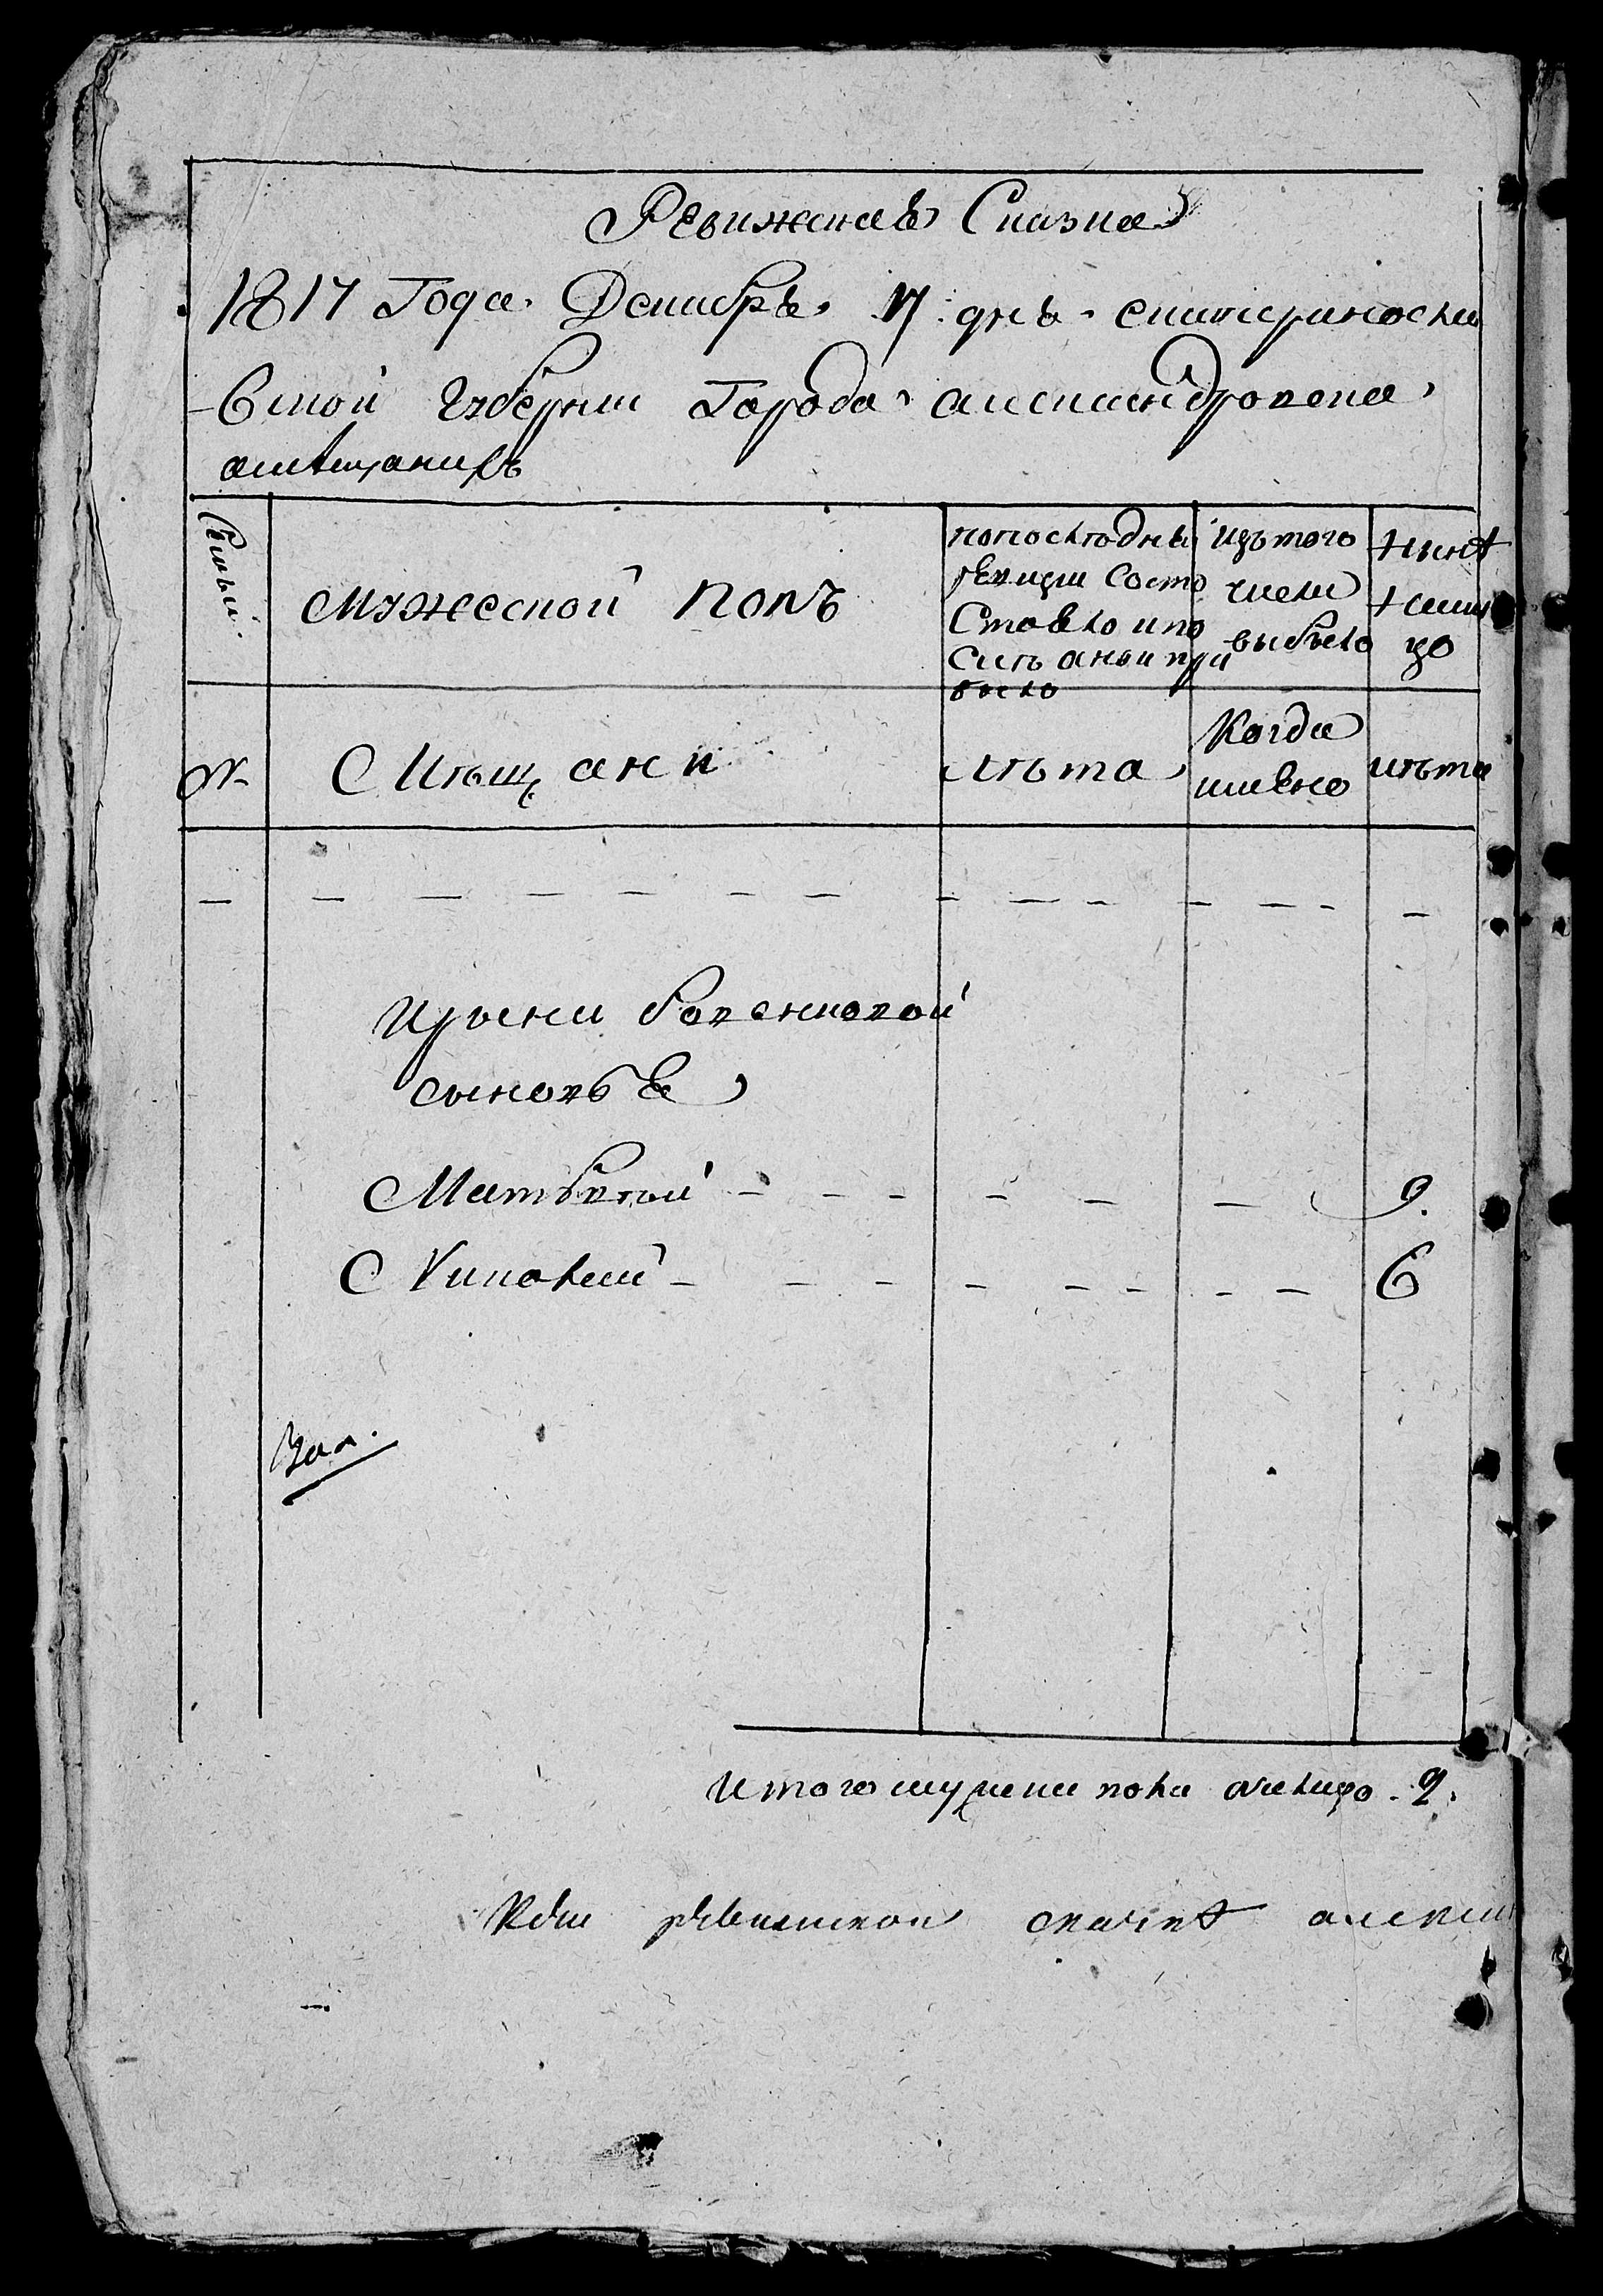 Ревижская Сказка
1817 Года Декабря 17 дня екатеринослав
ской губернии Города александровска
о мещанихъ
Семьи
мужеской полъ
попоследней
ревизии состо
ставло и по
сле оной при
было
изъ того
числа
выбыло
ныне
налиц
цо
№
Мещани
лета
Когда
имено
лета
Ирыни Боженковой
сыновья
Матвей
9.
6
Итого мужска пола налицо 2.
Кдей ревижской сказке алекса